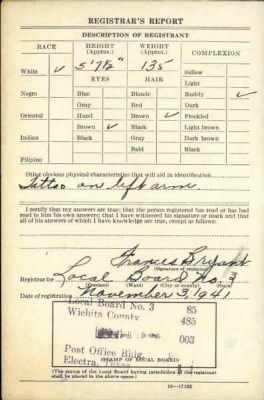 REGISTRAR'S REPORT
DESCRIPTION OF REGISTRANT
RACE HEIGHT (Approx.) WEIGHT (Approx.) COMPLEXION
White ✓ 5' 7½" 135 Sallow
EYES HAIR Light
Negro Blue Blonde Ruddy ✓
Gray Red Dark
Oriental Hazel Brown ✓ Freckled
Brown ✓ Black Light brown
Indian Black Gray Dark brown
Bald Black
Filipino
Other obvious physical characteristics that will aid in identification
Tattoo on left arm.
I certify that my answers are true; that the person registered has read or has had
read to him his own answers; that I have witnessed his signature or mark and that
all of his answers of which I have knowledge are true, except as follows:
Frances Bryant
(Signature of registrar)
Registrar for Local Board No. 3
(Precinct) (Ward) (City or county) (State)
Date of registration November 3, 1941
Local Board No. 3 85
Wichita County 485
003
Post Office Bldg.
Electra, Texas
(STAMP OF LOCAL BOARD)
(The stamp of the Local Board having jurisdiction of the registrant
shall be placed in the above space.)
16—17105